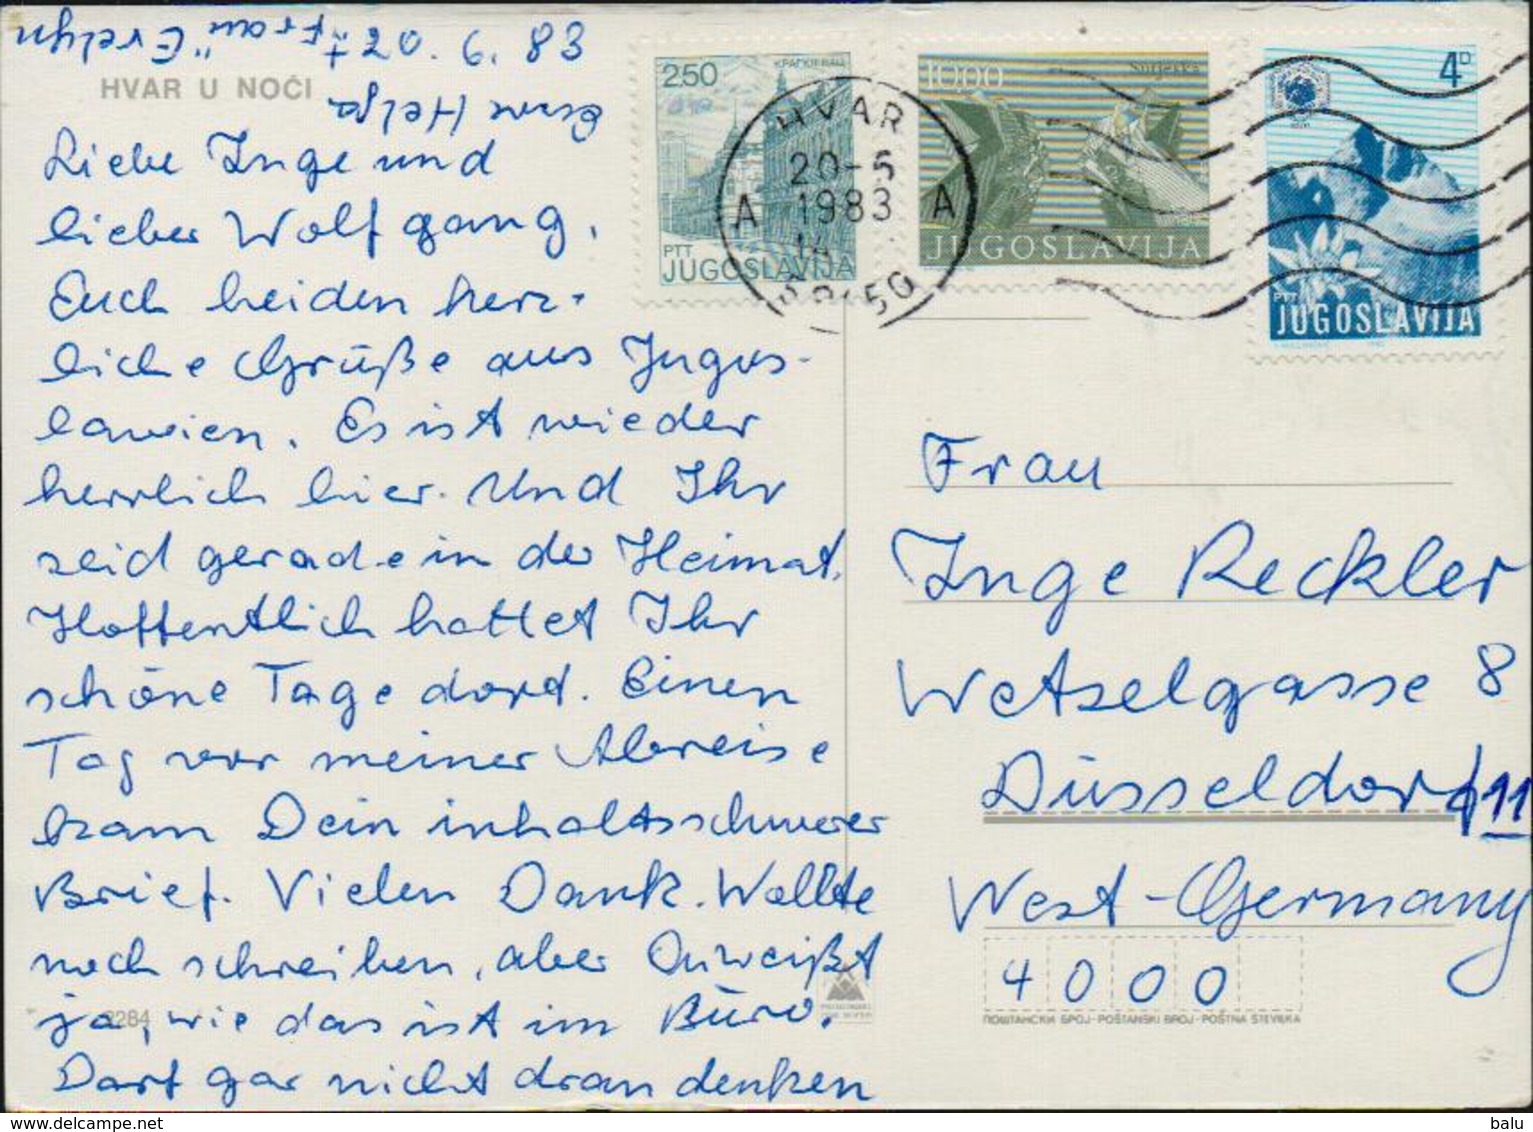 HVAR U NOĆI
Liebe Inge und
lieber Wolfgang,
Euch beiden herz-
liche Grüße aus Jugos-
lawien. Es ist wieder
herrlich hier. Und Ihr
seid gerade in der Heimat.
Hoffentlich hattet Ihr
schöne Tage dort. Einen
Tag vor meiner Abreise
kam Dein inhaltsschwerer
Brief. Vielen Dank. Wollte
noch schreiben, aber Du weißt
ja, wie das ist im Büro.
Darf gar nicht dran denken
Eure Helga
+ "Frau" Evelyn
20.6.83
2284
2.50
PTT
JUGOSLAVIJA
10.00
Sutjeska
JUGOSLAVIJA
4D
PTT
JUGOSLAVIJA
HVAR
20-6
1983
A A
Frau
Inge Reckler
Wetzelgasse 8
Düsseldorf 11
West-Germany
4000
ПОШТАНСКИ БРОЈ-POŠTANSKI BROJ-POŠTNA ŠTEVILKA
balu